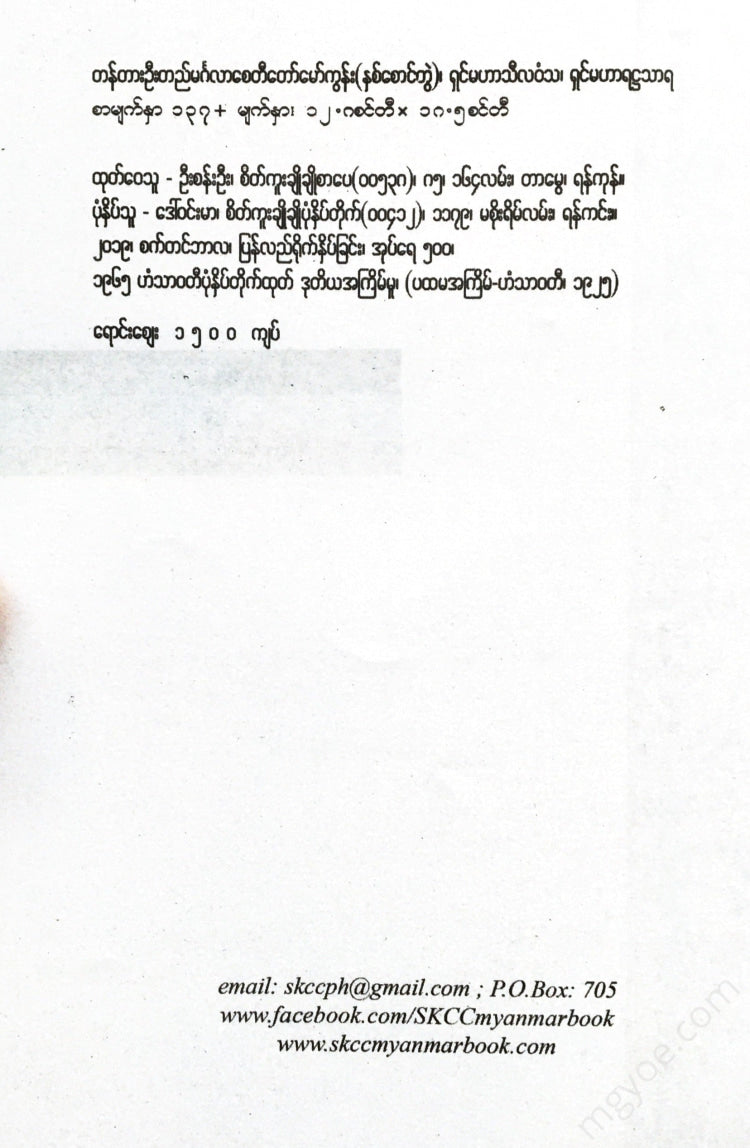 တန်တားဦးတည်မင်္ဂလာစေတီတော်မော်ကွန်း(နှစ်စောင်တွဲ)၊ ရှင်မဟာသီလဝံသ၊ ရှင်မဟာရဋ္ဌသာရ
စာမျက်နှာ ၁၃၇+ မျက်နှာ၊ ၁၂.၈စင်တီ× ၁၈.၅စင်တီ
ထုတ်ဝေသူ - ဦးစန်းဦး၊ စိတ်ကူးချိုချိုစာပေ(၀၀၅၃၈)၊ ၈၅၊ ၁၆၄လမ်း၊ တာမွေ၊ ရန်ကုန်။
ပုံနှိပ်သူ - ဒေါ်ဝင်းမာ၊ စိတ်ကူးချိုချိုပုံနှိပ်တိုက်(၀၀၄၁၂)၊ ၁၁၇၉၊ မစိုးရိမ်လမ်း၊ ရန်ကင်း။
၂၀၁၉၊ စက်တင်ဘာလ၊ ပြန်လည်ရိုက်နှိပ်ခြင်း၊ အုပ်ရေ ၅၀၀၊
၁၉၆၅ ဟံသာဝတီပုံနှိပ်တိုက်ထုတ် ဒုတိယအကြိမ်မူ၊ (ပထမအကြိမ်-ဟံသာဝတီ၊ ၁၉၂၅)
ရောင်းဈေး ၁ ၅ ၀ ၀ ကျပ်
email: skccph@gmail.com ; P.O.Box: 705
www.facebook.com/SKCCmyanmarbook
www.skccmyanmarbook.com
mgyoe.com